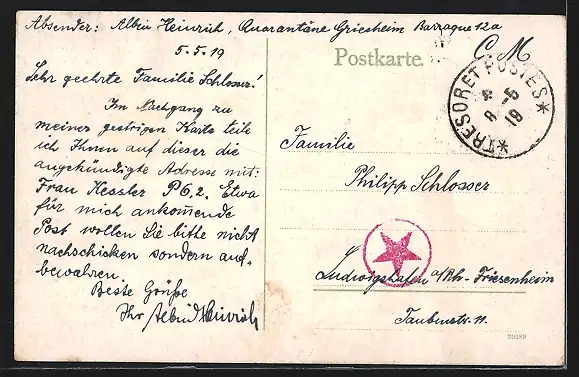 Absender: Albin Heinrich, Quarantäne Griesheim Barraque 12a
5.5.19
Postkarte.
C. M
TRESOR ET POSTES
8 - 5
19
Sehr geehrte Familie Schlosser!
Im Nachgang zu
meiner gestrigen Karte teile
ich Ihnen auf dieser die
angekündigte Adresse mit:
Frau Kessler P 6,2. Etwa
für mich ankommende
Post wollen Sie bitte nicht
nachschicken sondern auf-
bewahren.
Beste Grüße
Ihr Albin Heinrich
Familie
Philipp Schlosser
Ludwigshafen a/Rh-Friesenheim
Taubenstr. 11.